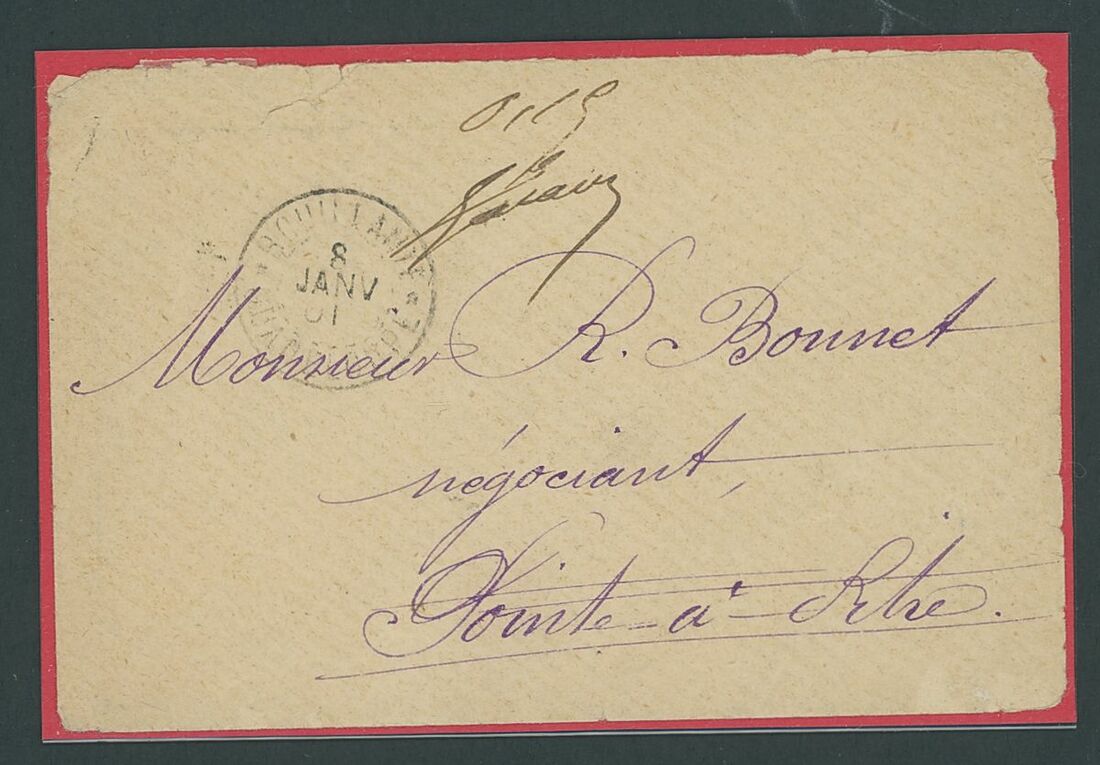 0,15
BOUILLANTE
8
JANV
01
GUADELOUPE
Monsieur R. Bonnet
négociant,
Pointe-à-Pitre.